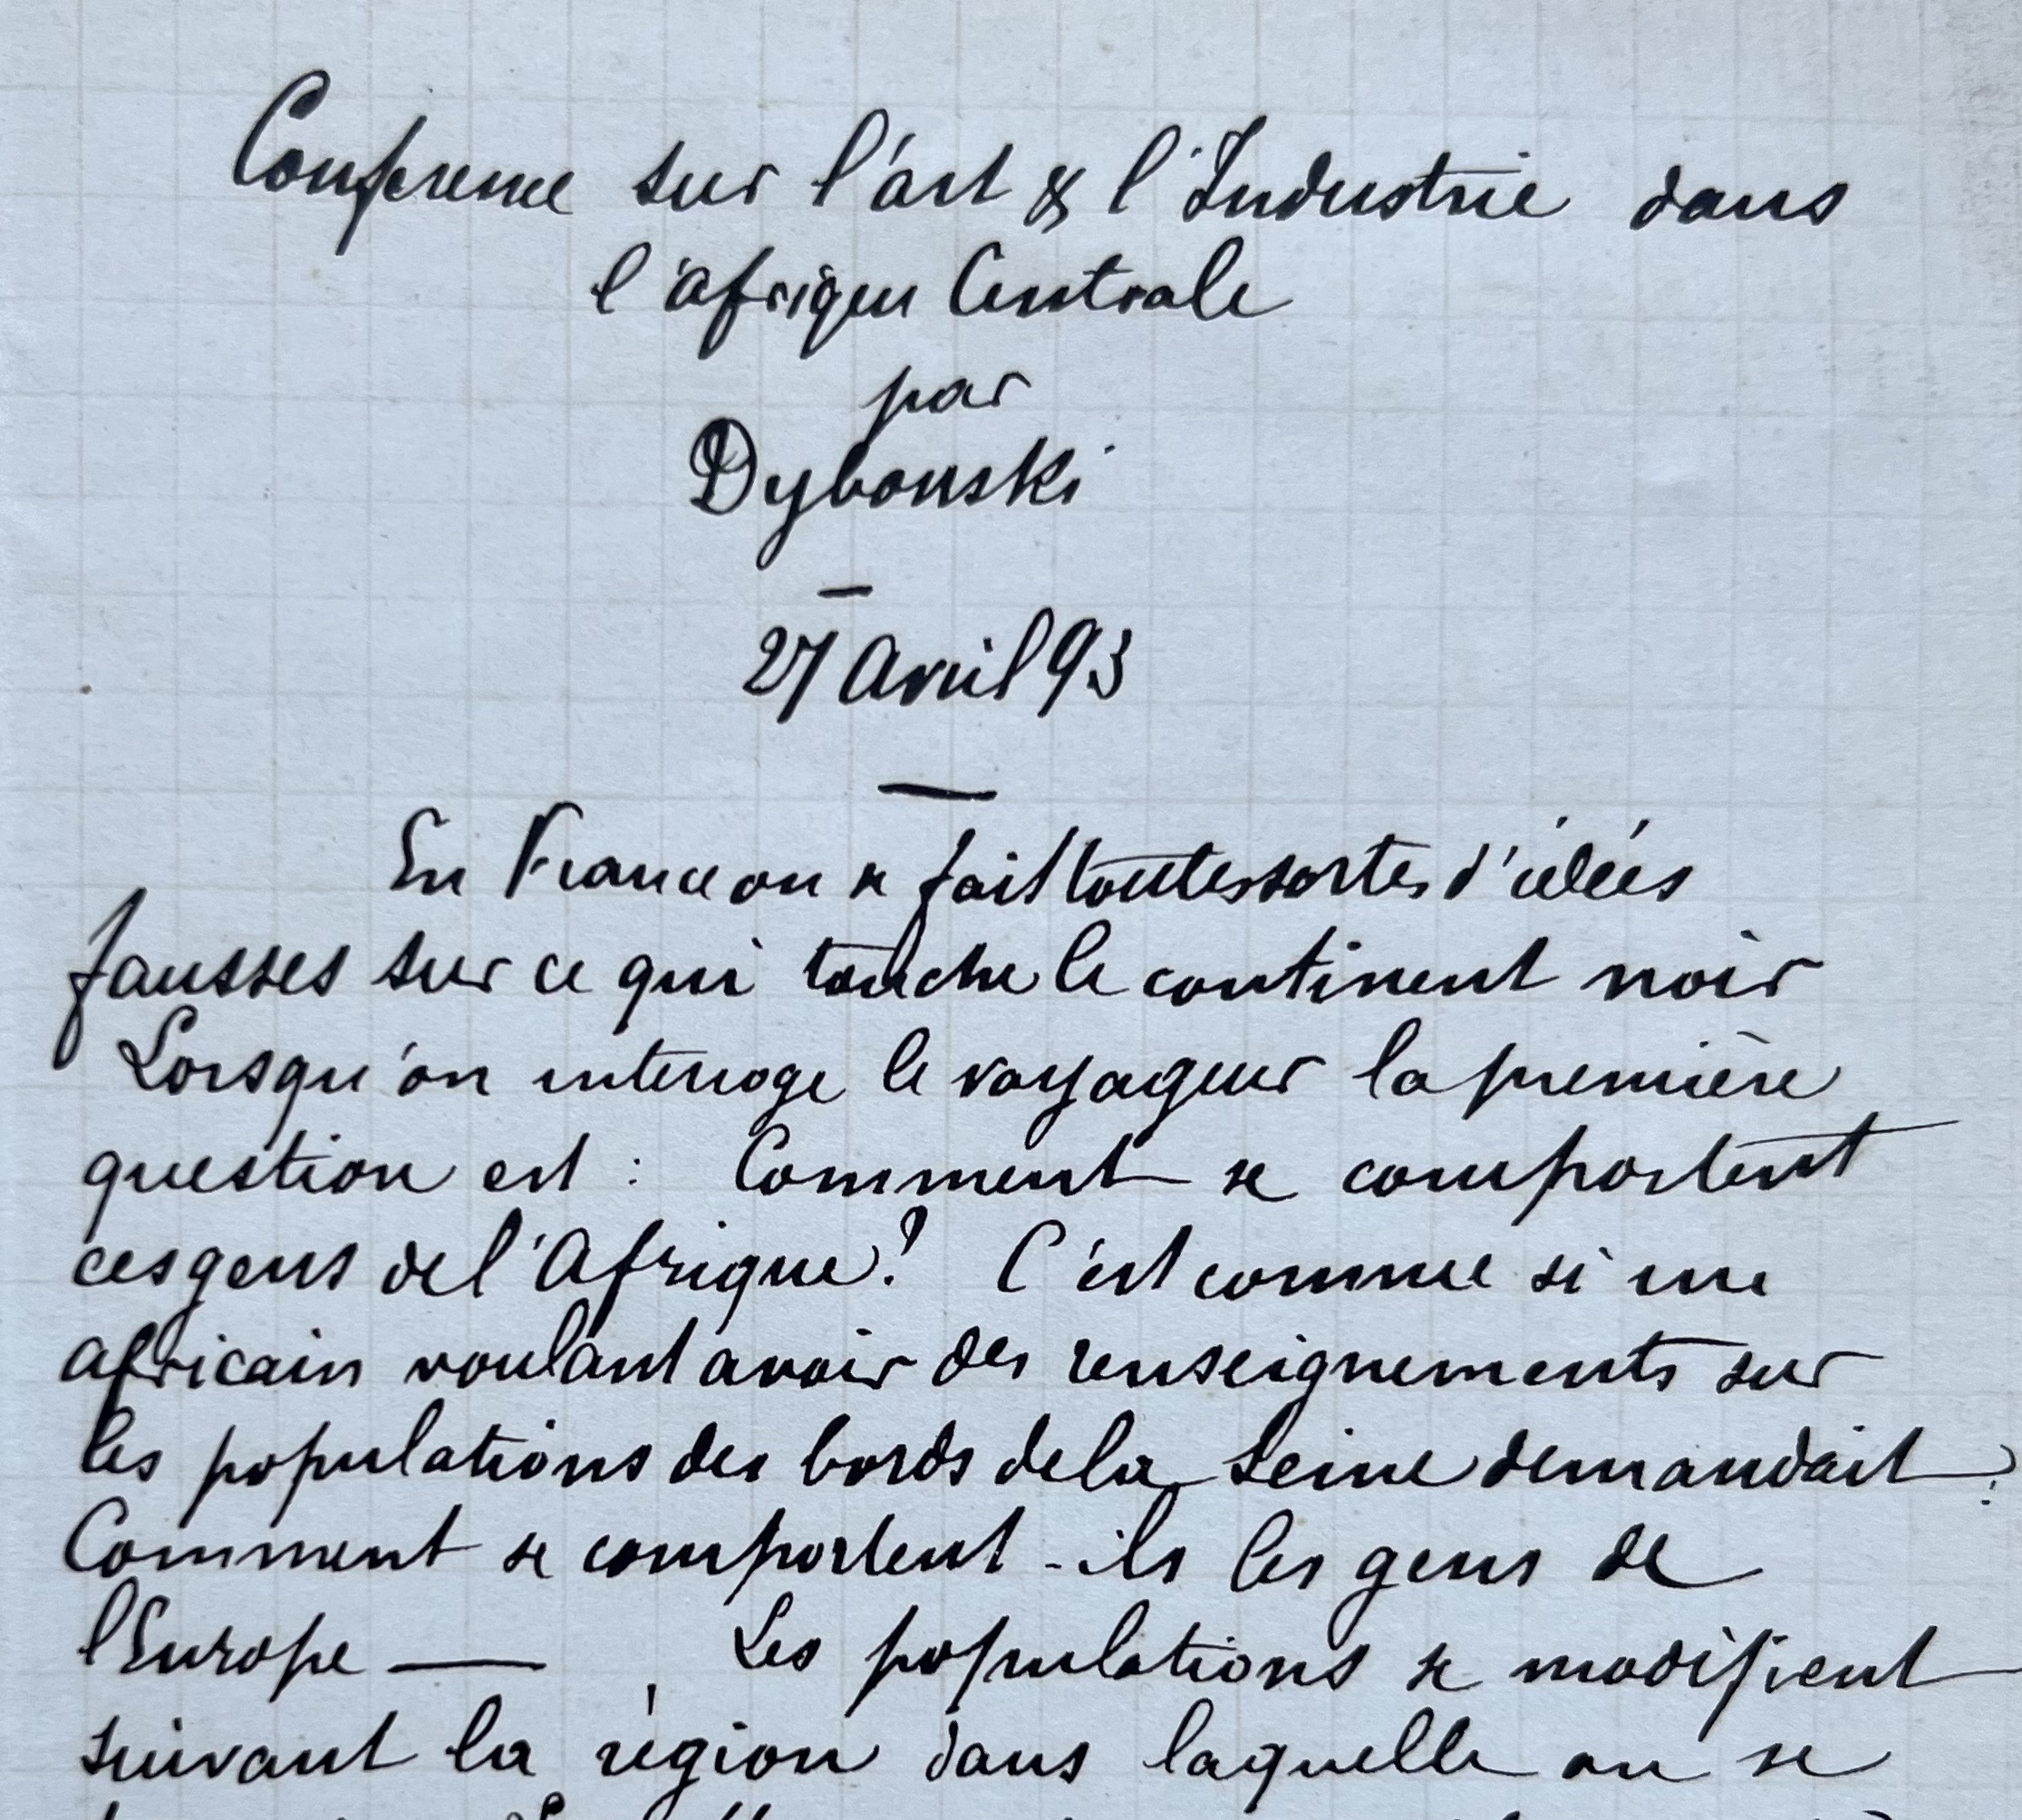 Conference sur l'art & l'Industrie dans
l'afrique Centrale
par
Dybowski
—
27 Avril 93
—
En France on se fait toutes sortes d'idées
fausses sur ce qui touche le continent noir
Lorsqu'on interroge le voyageur la première
question est : Comment se comportent
ces gens de l'Afrique? C'est comme si un
africain voulant avoir des renseignements sur
les populations des bords de la Seine demandait :
Comment se comportent-ils les gens de
l'Europe — Les populations se modifient
suivant la région dans laquelle on se